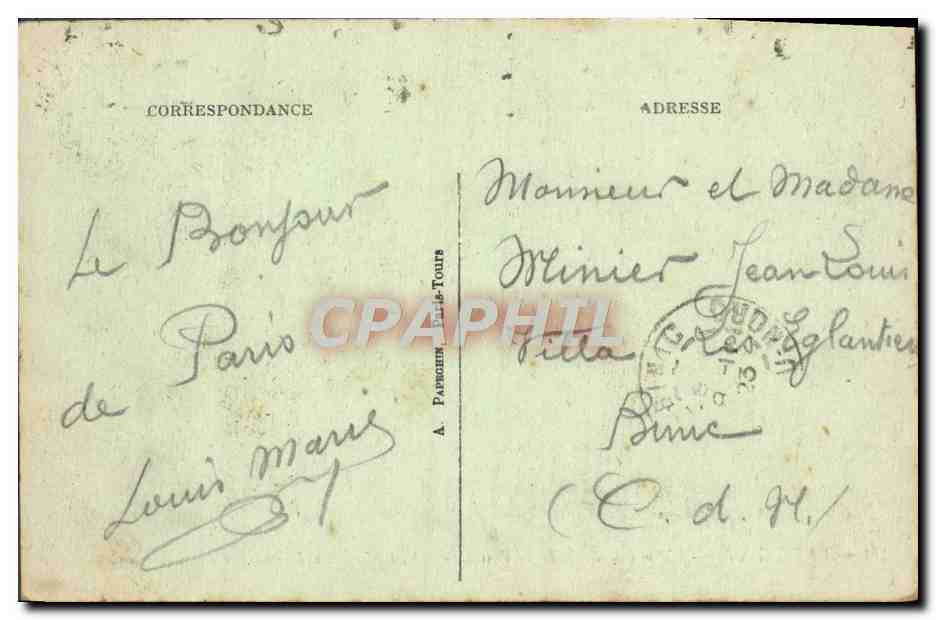 CORRESPONDANCE
Le Bonjour
de Paris
Louis Marie
A. PAPEGHIN, Paris-Tours
ADRESSE
Monsieur et Madame
Minier Jean Louis
Villa Les Eglantiers
Binic
(C. d. N.)
CPAPHIL